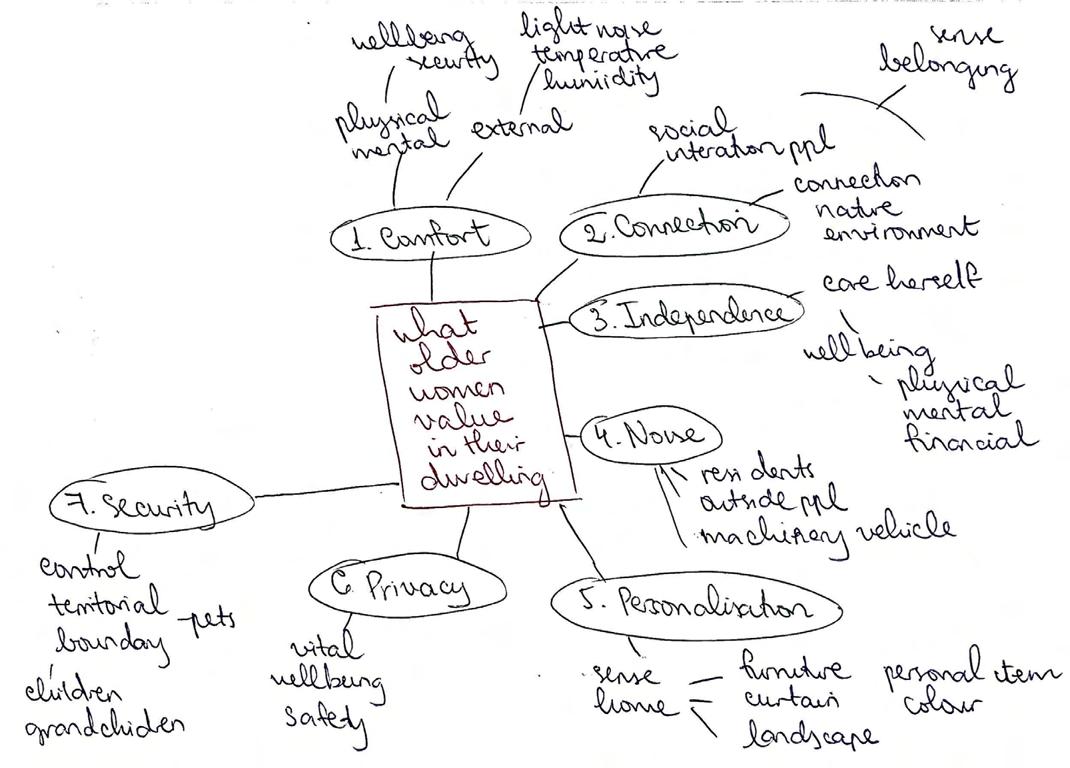 wellbeing
security
light noise
temperature
humidity
sense
belonging
physical
mental
external
social
interation ppl
1. Comfort
2. Connection
connection
natre
environment
what
older
women
value
in their
dwelling
3. Independence
care herself
wellbeing
physical
mental
financial
4. Noise
residents
outside ppl
machinery vehicle
5. Personalisation
sense
home
furniture
curtain
landscape
personal item
colour
6. Privacy
vital
wellbeing
safety
7. Security
control
territorial
bounday
pets
children
grandchiden